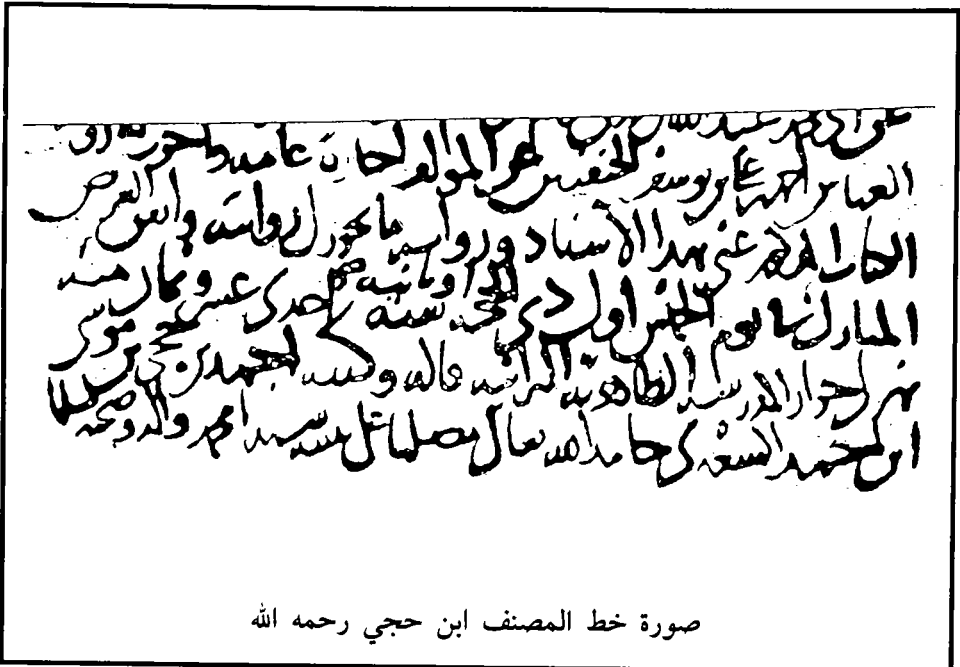 العباس احمد بن علي بن يوسف الحنفيين المولف اجازة عامه واجزت له
الكتاب عني بهذا الاسناد ورواية ما يجوز لي روايته واتفق العرض
المبارك في يوم الخميس اول ذي الحجة سنة احدى عشر وثمان مئة
بمنزلي جوار المدرسة الظاهرية البرانية قاله وكتبه احمد بن حجي بن موسى
ابن احمد السعدي حامدا لله تعالى مصليا على نبيه سيدنا محمد واله وصحبه مسلما
صورة خط المصنف ابن حجي رحمه الله